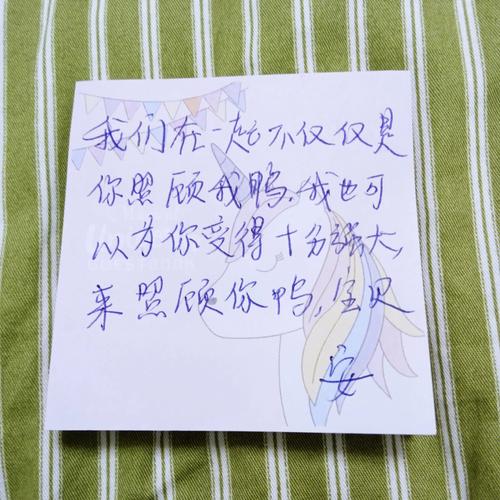 我们在一起不仅仅是
你照顾我鸭,我也可
以为你变得十分强大,
来照顾你鸭,宝贝
安